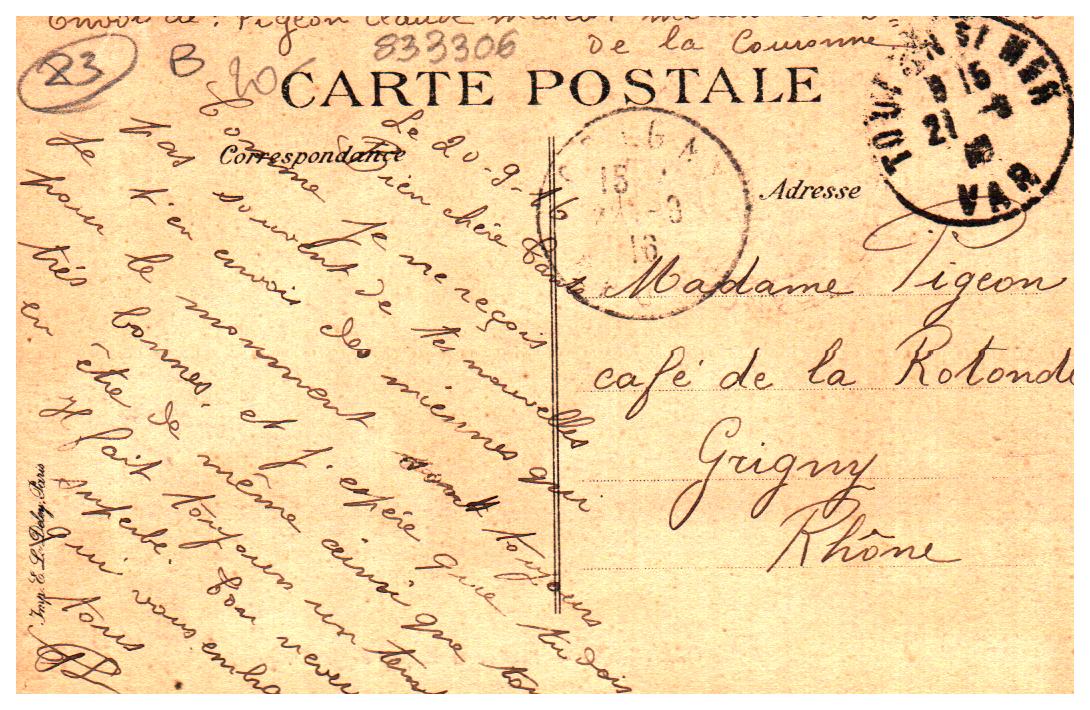 Envoi de : Pigeon Claude
de la Couronne
833306
23
B
CARTE POSTALE
Correspondance
Adresse
TOULON SI MER
15
21 -9
VAR
15
-9
16
Le 20-9-16
Bien chère tante
Comme je ne reçois
pas souvent de tes nouvelles
Je t'en envois des miennes qui
pour le monment sont toujours
très bonnes. et j'espère que tu dois
en être de même ainsi que
Il fait toujours un
superbe. Ton neveu
qui vous
tous
Madame Pigeon
café de la Rotonde
Grigny
Rhône
Imp. E. L. Deley, Paris